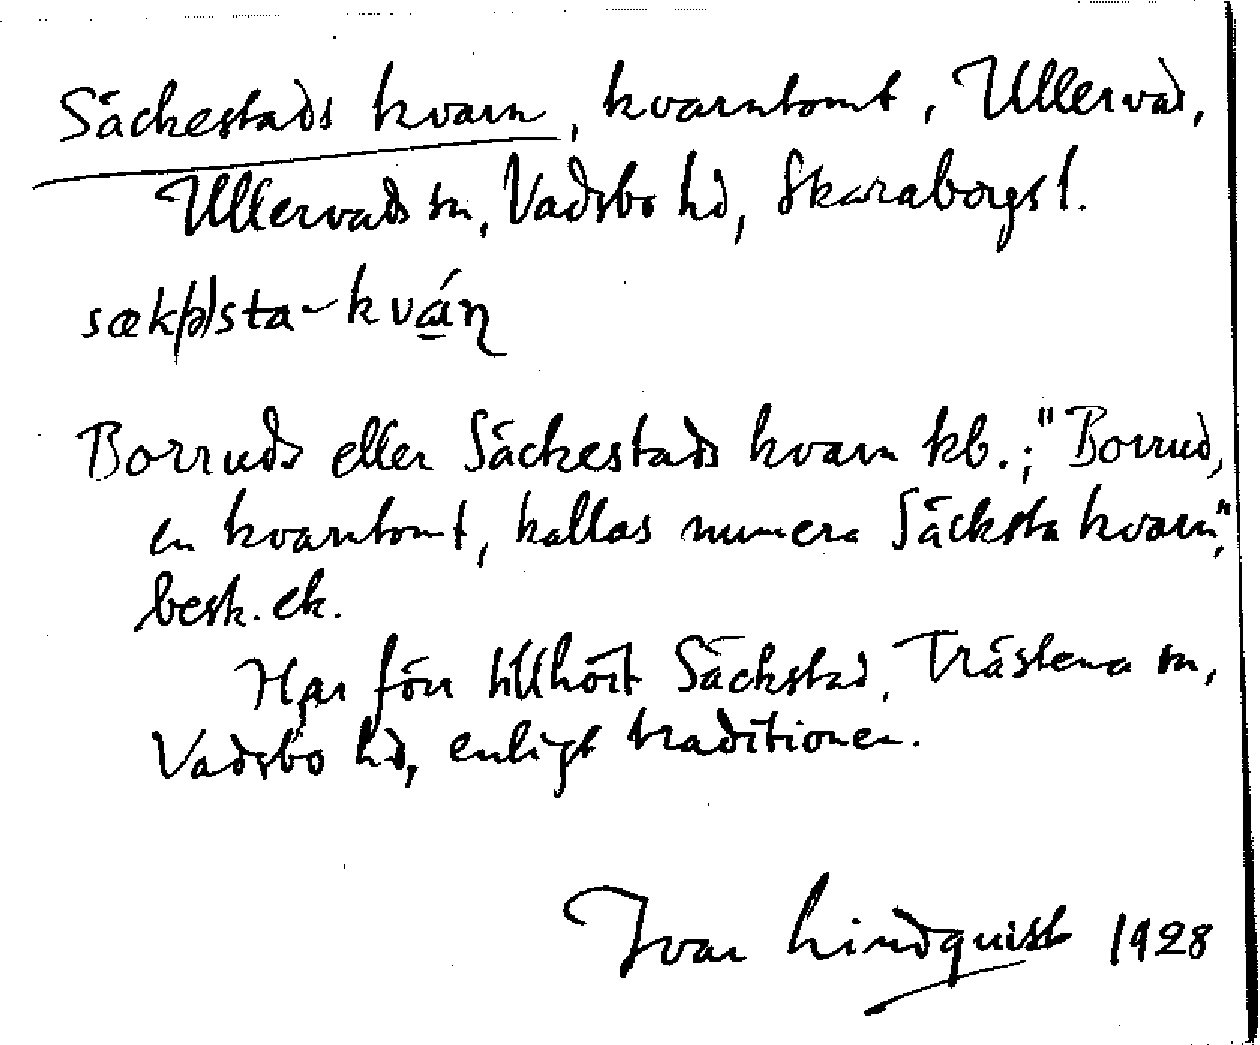 Säckestads kvarn, kvarntomt, Ullervad,
Ullervads sn, Vadsbo hd, Skaraborgs l.
sæk(ə)sta-kván
Borruds eller Säckestads kvarn kb.; "Borrud,
en kvarntomt, kallas numera Säcksta kvarn",
besk. ek.
Har förr tillhört Säckstad, Trästena sn,
Vadsbo hd, enligt traditionen.
Ivar Lindquist 1928